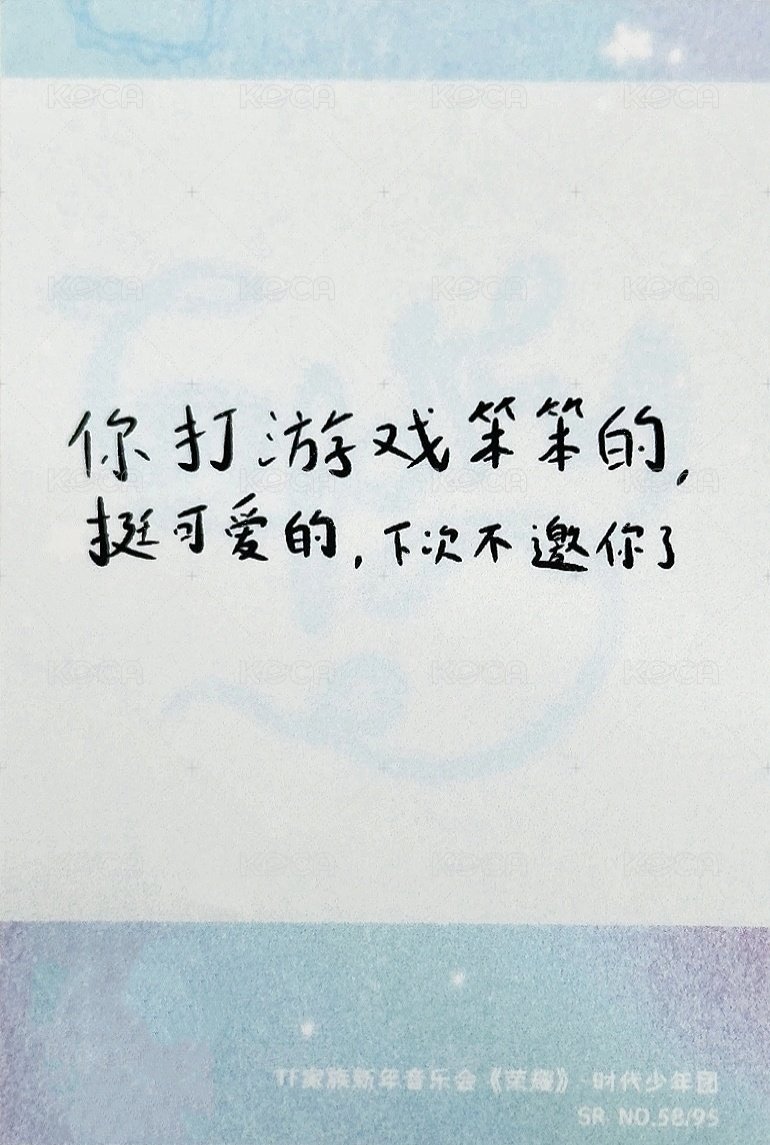 你打游戏笨笨的,
挺可爱的,下次不邀你了
TF家族新年音乐会《荣耀》·时代少年团
SR NO.58/95
KOCA